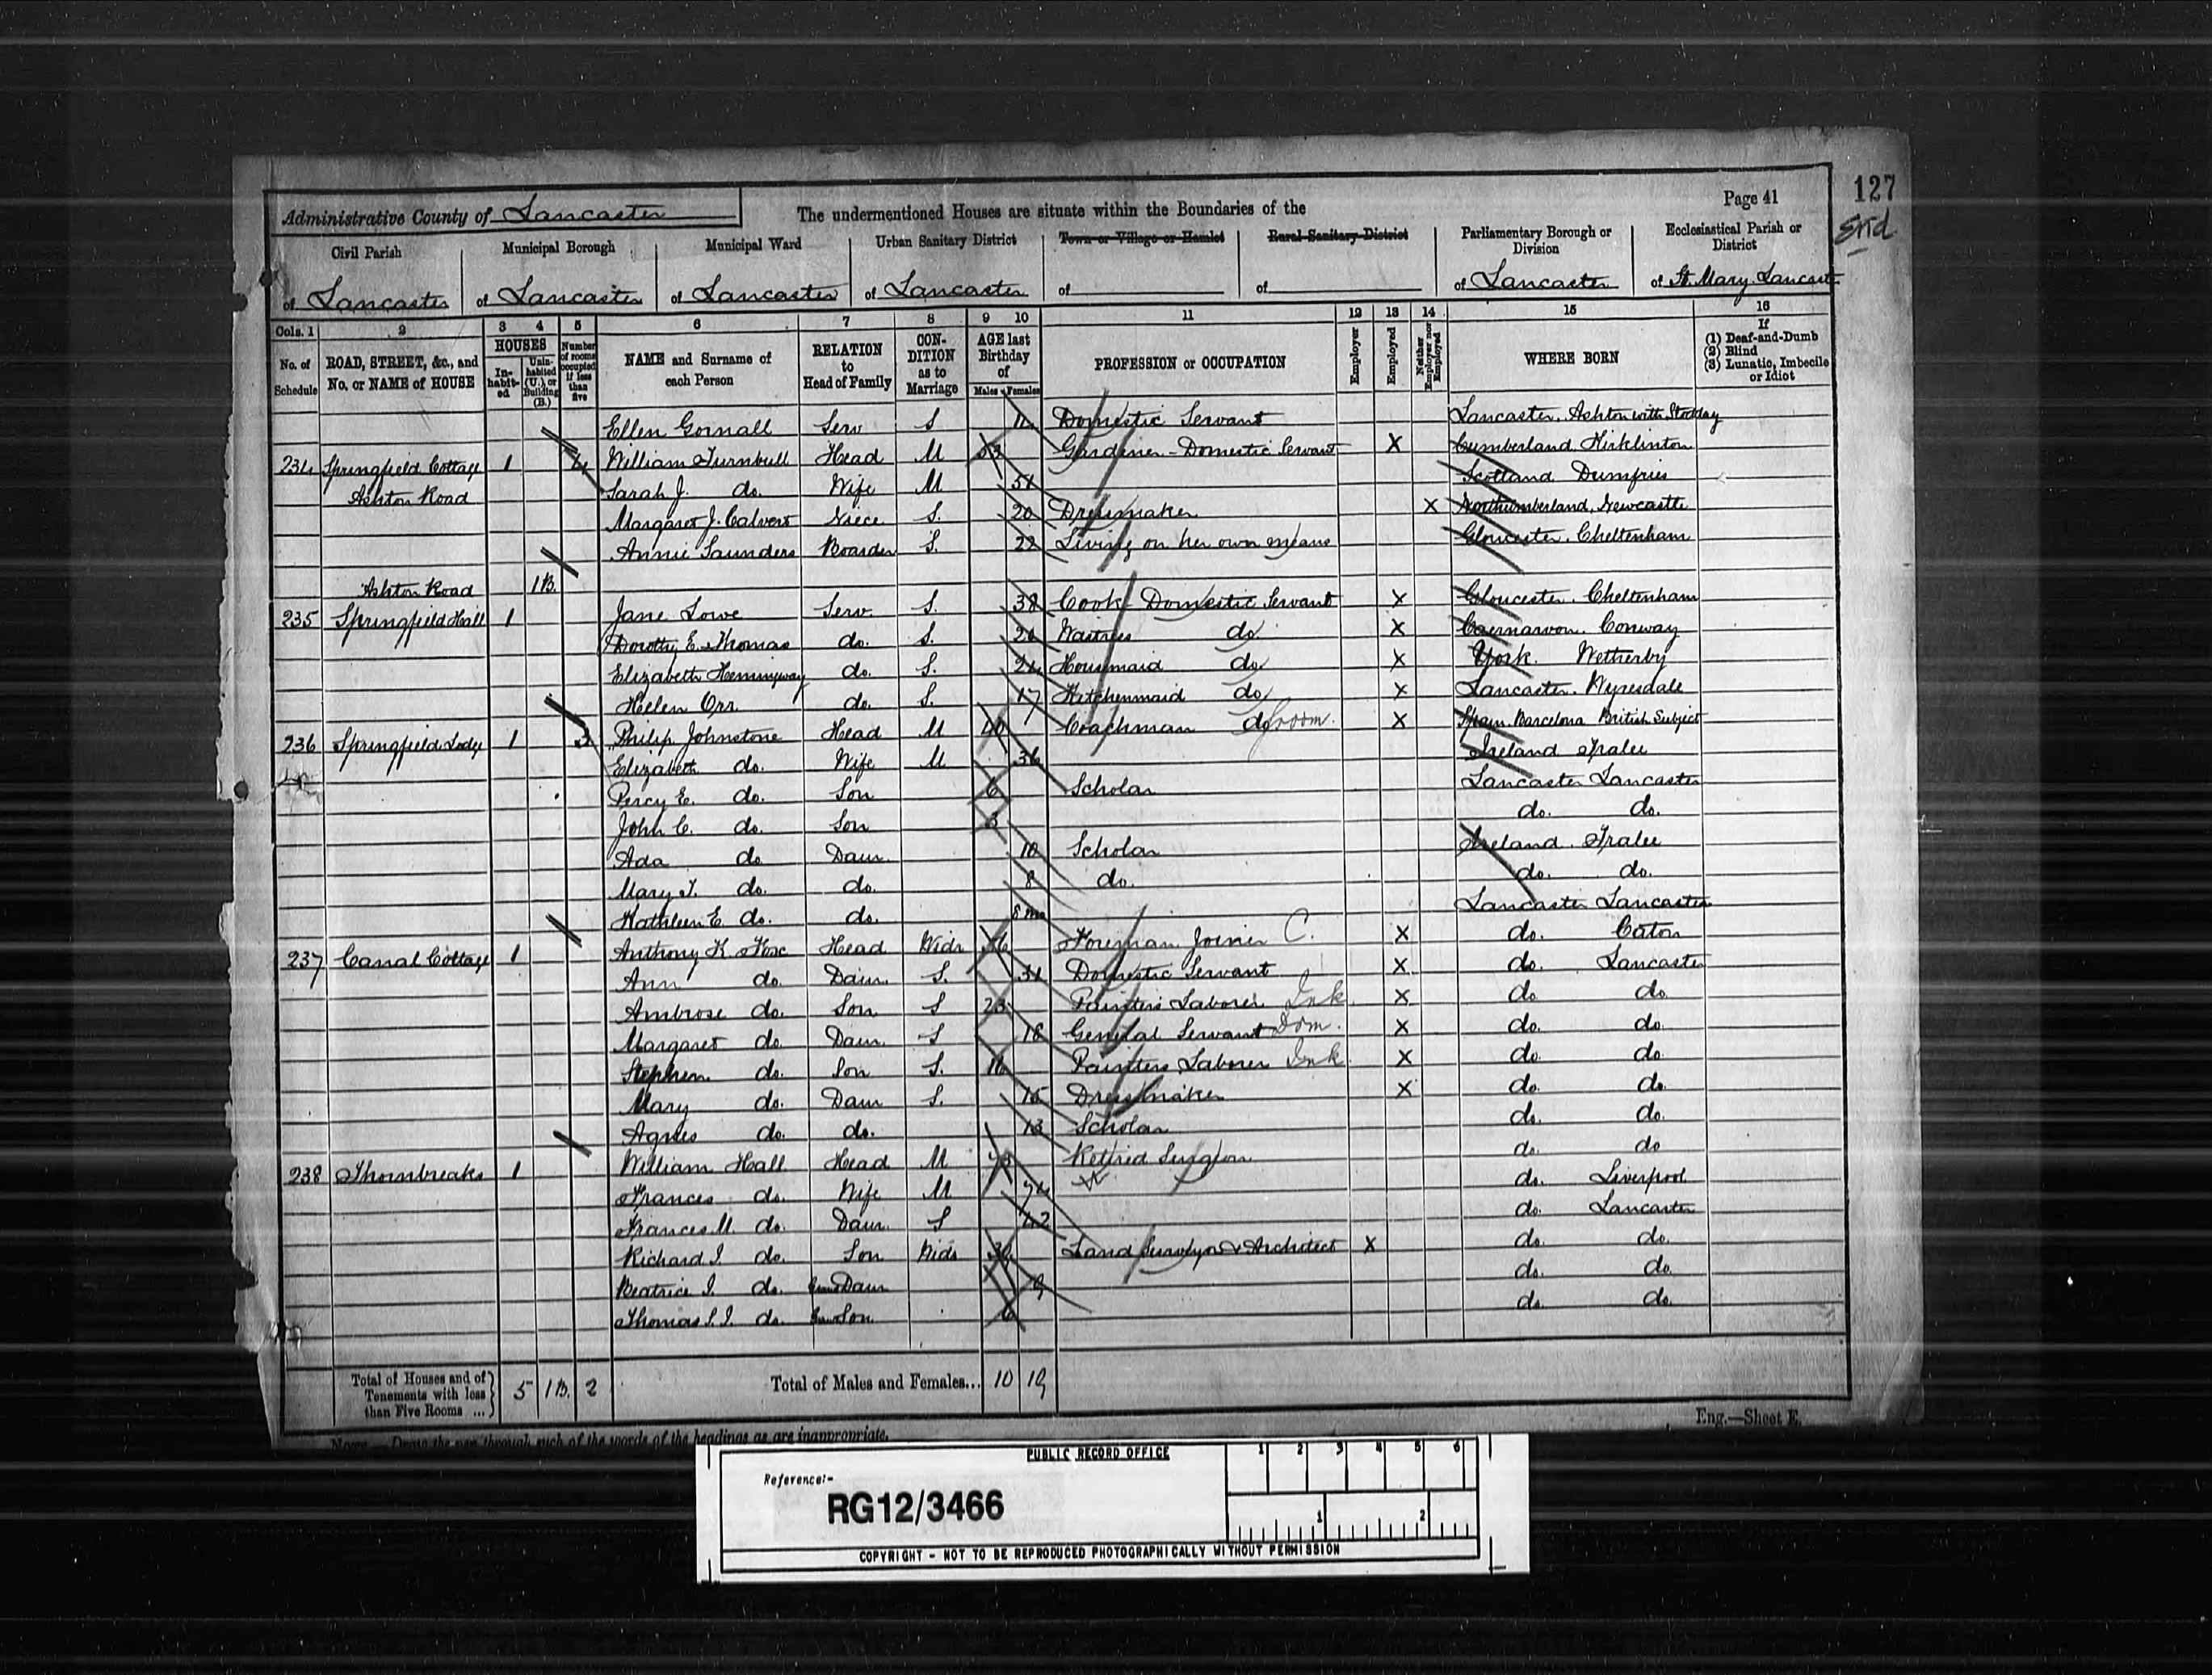 127
End
Page 41
Administrative County of Lancaster The undermentioned Houses are situate within the Boundaries of the
Civil Parish Municipal Borough Municipal Ward Urban Sanitary District Town or Village or Hamlet Rural Sanitary District Parliamentary Borough or Division Ecclesiastical Parish or District
of Lancaster of Lancaster of Lancaster of Lancaster of of of Lancaster of St. Mary Lancaster
Cols. 1 2 3 4 5 6 7 8 9 10 11 12 13 14 15 16
No. of Schedule ROAD, STREET, &c., and No. or NAME of HOUSE HOUSES Inhabited Uninhabited (U.), or Building (B.) Number of rooms occupied if less than five NAME and Surname of each Person RELATION to Head of Family CONDITION as to Marriage AGE last Birthday of Males Females PROFESSION or OCCUPATION Employer Employed Neither Employer nor Employed WHERE BORN If (1) Deaf-and-Dumb (2) Blind (3) Lunatic, Imbecile or Idiot
Ellen Gornall Serv S Domestic Servant Lancaster. Ashton with Stodday
234 Springfield Cottage 1 4 William Turnbull Head M 53 Gardener - Domestic Servant X Cumberland Kirklinton
Ashton Road Sarah J. do. Wife M 51 Scotland Dumfries
Margaret J. Calvert Niece S. 20 Dressmaker X Northumberland, Newcastle
Annie Saunders Boarder S. 22 Living on her own means Gloucester. Cheltenham
Ashton Road 1B.
235 Springfield Hall 1 Jane Lowe Serv. S. 38 Cook Domestic Servant X Gloucester. Cheltenham
Dorothy E. Thomas do. S. Waitress do X Caernarvon. Conway
Elizabeth Hemingway do. S. 24 Housemaid do X York. Wetherby
Helen Orr do. S. 17 Kitchenmaid do X Lancaster. Wyresdale
236 Springfield Lodge 1 3 Philip Johnstone Head M 40 Coachman do Groom. X Spain. Barcelona British Subject
Elizabeth do. Wife M 36 Ireland Tralee
Percy E. do. Son 6 Scholar Lancaster Lancaster
John C. do. Son 3 do. do.
Ada do Daur. 10 Scholar Ireland. Tralee
Mary T. do. do. 8 do. do. do.
Kathleen E. do. do. 8 mo Lancaster Lancaster
237 Canal Cottage 1 Anthony K. Fox Head Widr 56 Foreman Joiner C. X do. Caton
Ann do. Daur. S. 31 Domestic Servant X do. Lancaster
Ambrose do. Son S 23 Painters Laborer X do do
Margaret do. Daur. S 18 General Servant Dom. X do. do
Stephen do. Son S. 16 Painters Laborer X do do.
Mary do. Daur S. 15 Dressmaker X do. do.
Agnes do. do. 13 Scholar do. do.
238 Thornbreaks 1 William Hall Head M Retired Surgeon do. do
Frances do. Wife M do. Liverpool
Frances M. do. Daur. S 42 do. Lancaster
Richard I. do. Son Widr Land Surveyor & Architect X do. do.
Beatrice I. do. GranDaur 9 do. do
Thomas S. I. do. GranSon 6 do. do.
Total of Houses and of Tenements with less than Five Rooms ... 5 1B. 2 Total of Males and Females... 10 19
Eng.—Sheet E.
Note.—Draw the pen through such of the words of the headings as are inappropriate.
PUBLIC RECORD OFFICE
1 2 3 4 5 6
Reference:-
RG12/3466
1 2
COPYRIGHT - NOT TO BE REPRODUCED PHOTOGRAPHICALLY WITHOUT PERMISSION